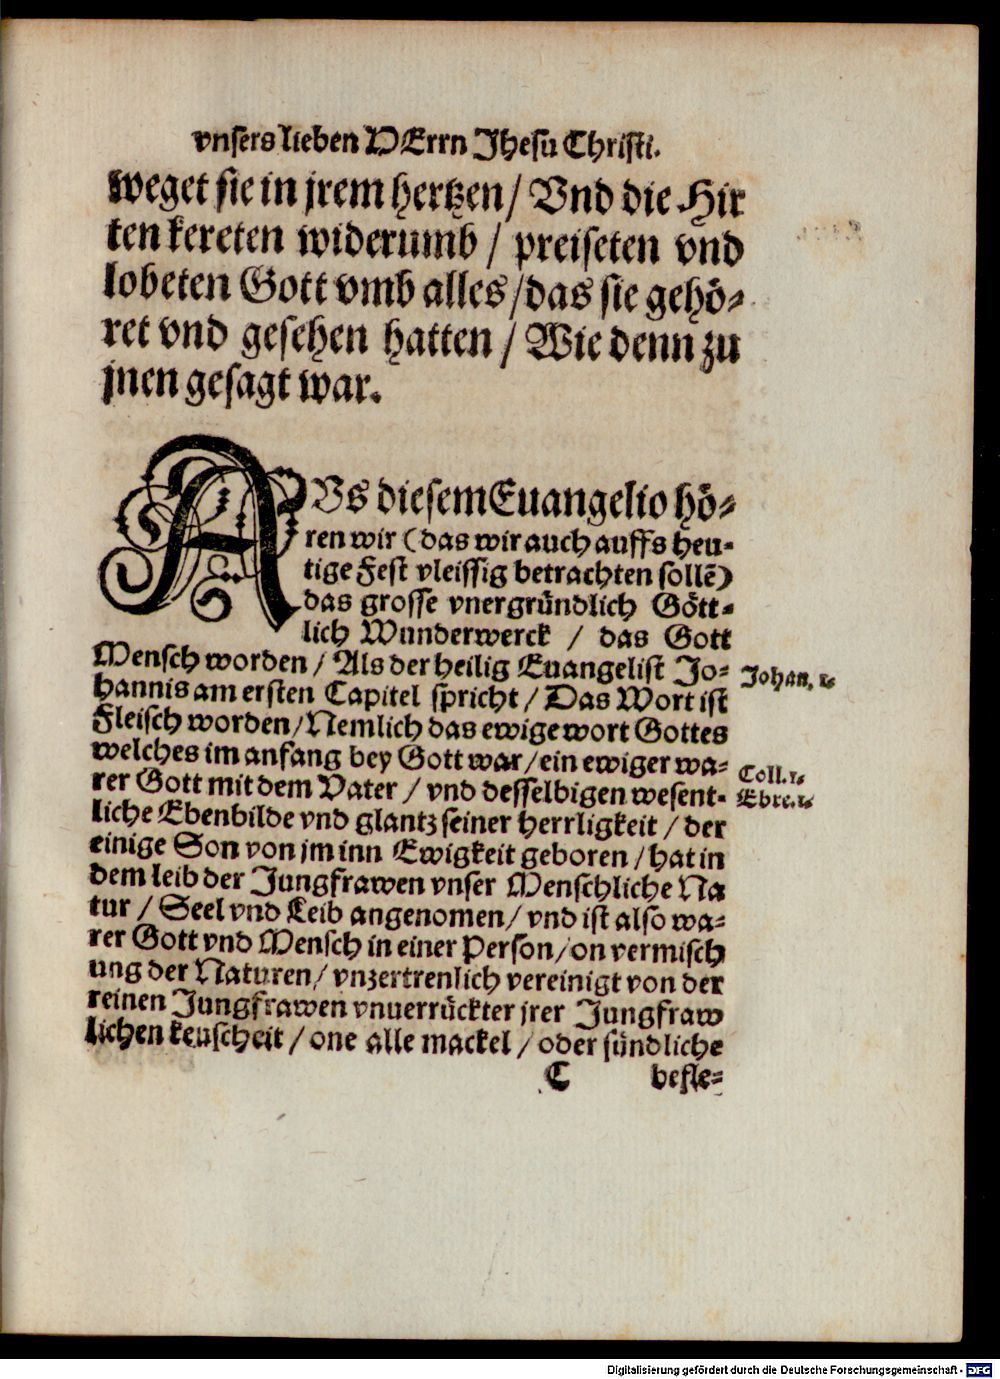 vnsers lieben HErrn Jhesu Christi.
weget sie in jrem hertzen / Vnd die Hir
ten kereten widerumb / preiseten vnd
lobeten Gott vmb alles / das sie gehö-
ret vnd gesehen hatten / Wie denn zu
jnen gesagt war.
AVs diesem Euangelio hö-
ren wir (das wir auch auffs heu-
tige Fest vleissig betrachten sollē)
das grosse vnergründlich Gött-
lich Wunderwerck / das Gott
Mensch worden / Als der heilig Euangelist Jo-
Johan. 1.
hannis am ersten Capitel spricht / Das Wort ist
Fleisch worden / Nemlich das ewige wort Gottes
welches im anfang bey Gott war / ein ewiger wa-
Coll. 1.
rer Gott mit dem Vater / vnd desselbigen wesent-
Ebre. 1.
liche Ebenbilde vnd glantz seiner herrligkeit / der
einige Son von jm inn Ewigkeit geboren / hat in
dem leib der Jungfrawen vnser Menschliche Na
tur / Seel vnd Leib angenomen / vnd ist also wa-
rer Gott vnd Mensch in einer Person / on vermisch
ung der Naturen / vnzertrenlich vereinigt von der
reinen Jungfrawen vnuerrückter jrer Jungfraw
lichen keuscheit / one alle mackel / oder sündliche
C befle-
Digitalisierung gefördert durch die Deutsche Forschungsgemeinschaft - DFG